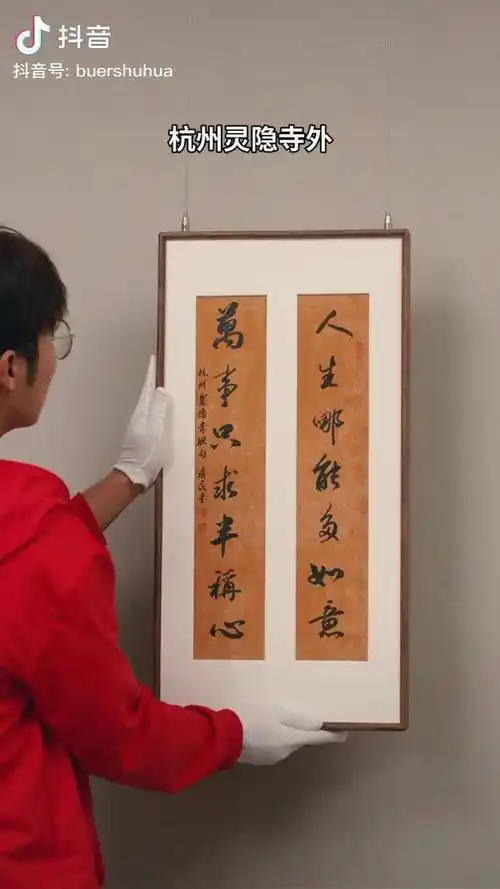 抖音
抖音号: buershuhua
杭州灵隐寺外
人生哪能多如意
萬事只求半稱心
杭州靈隱寺聯句